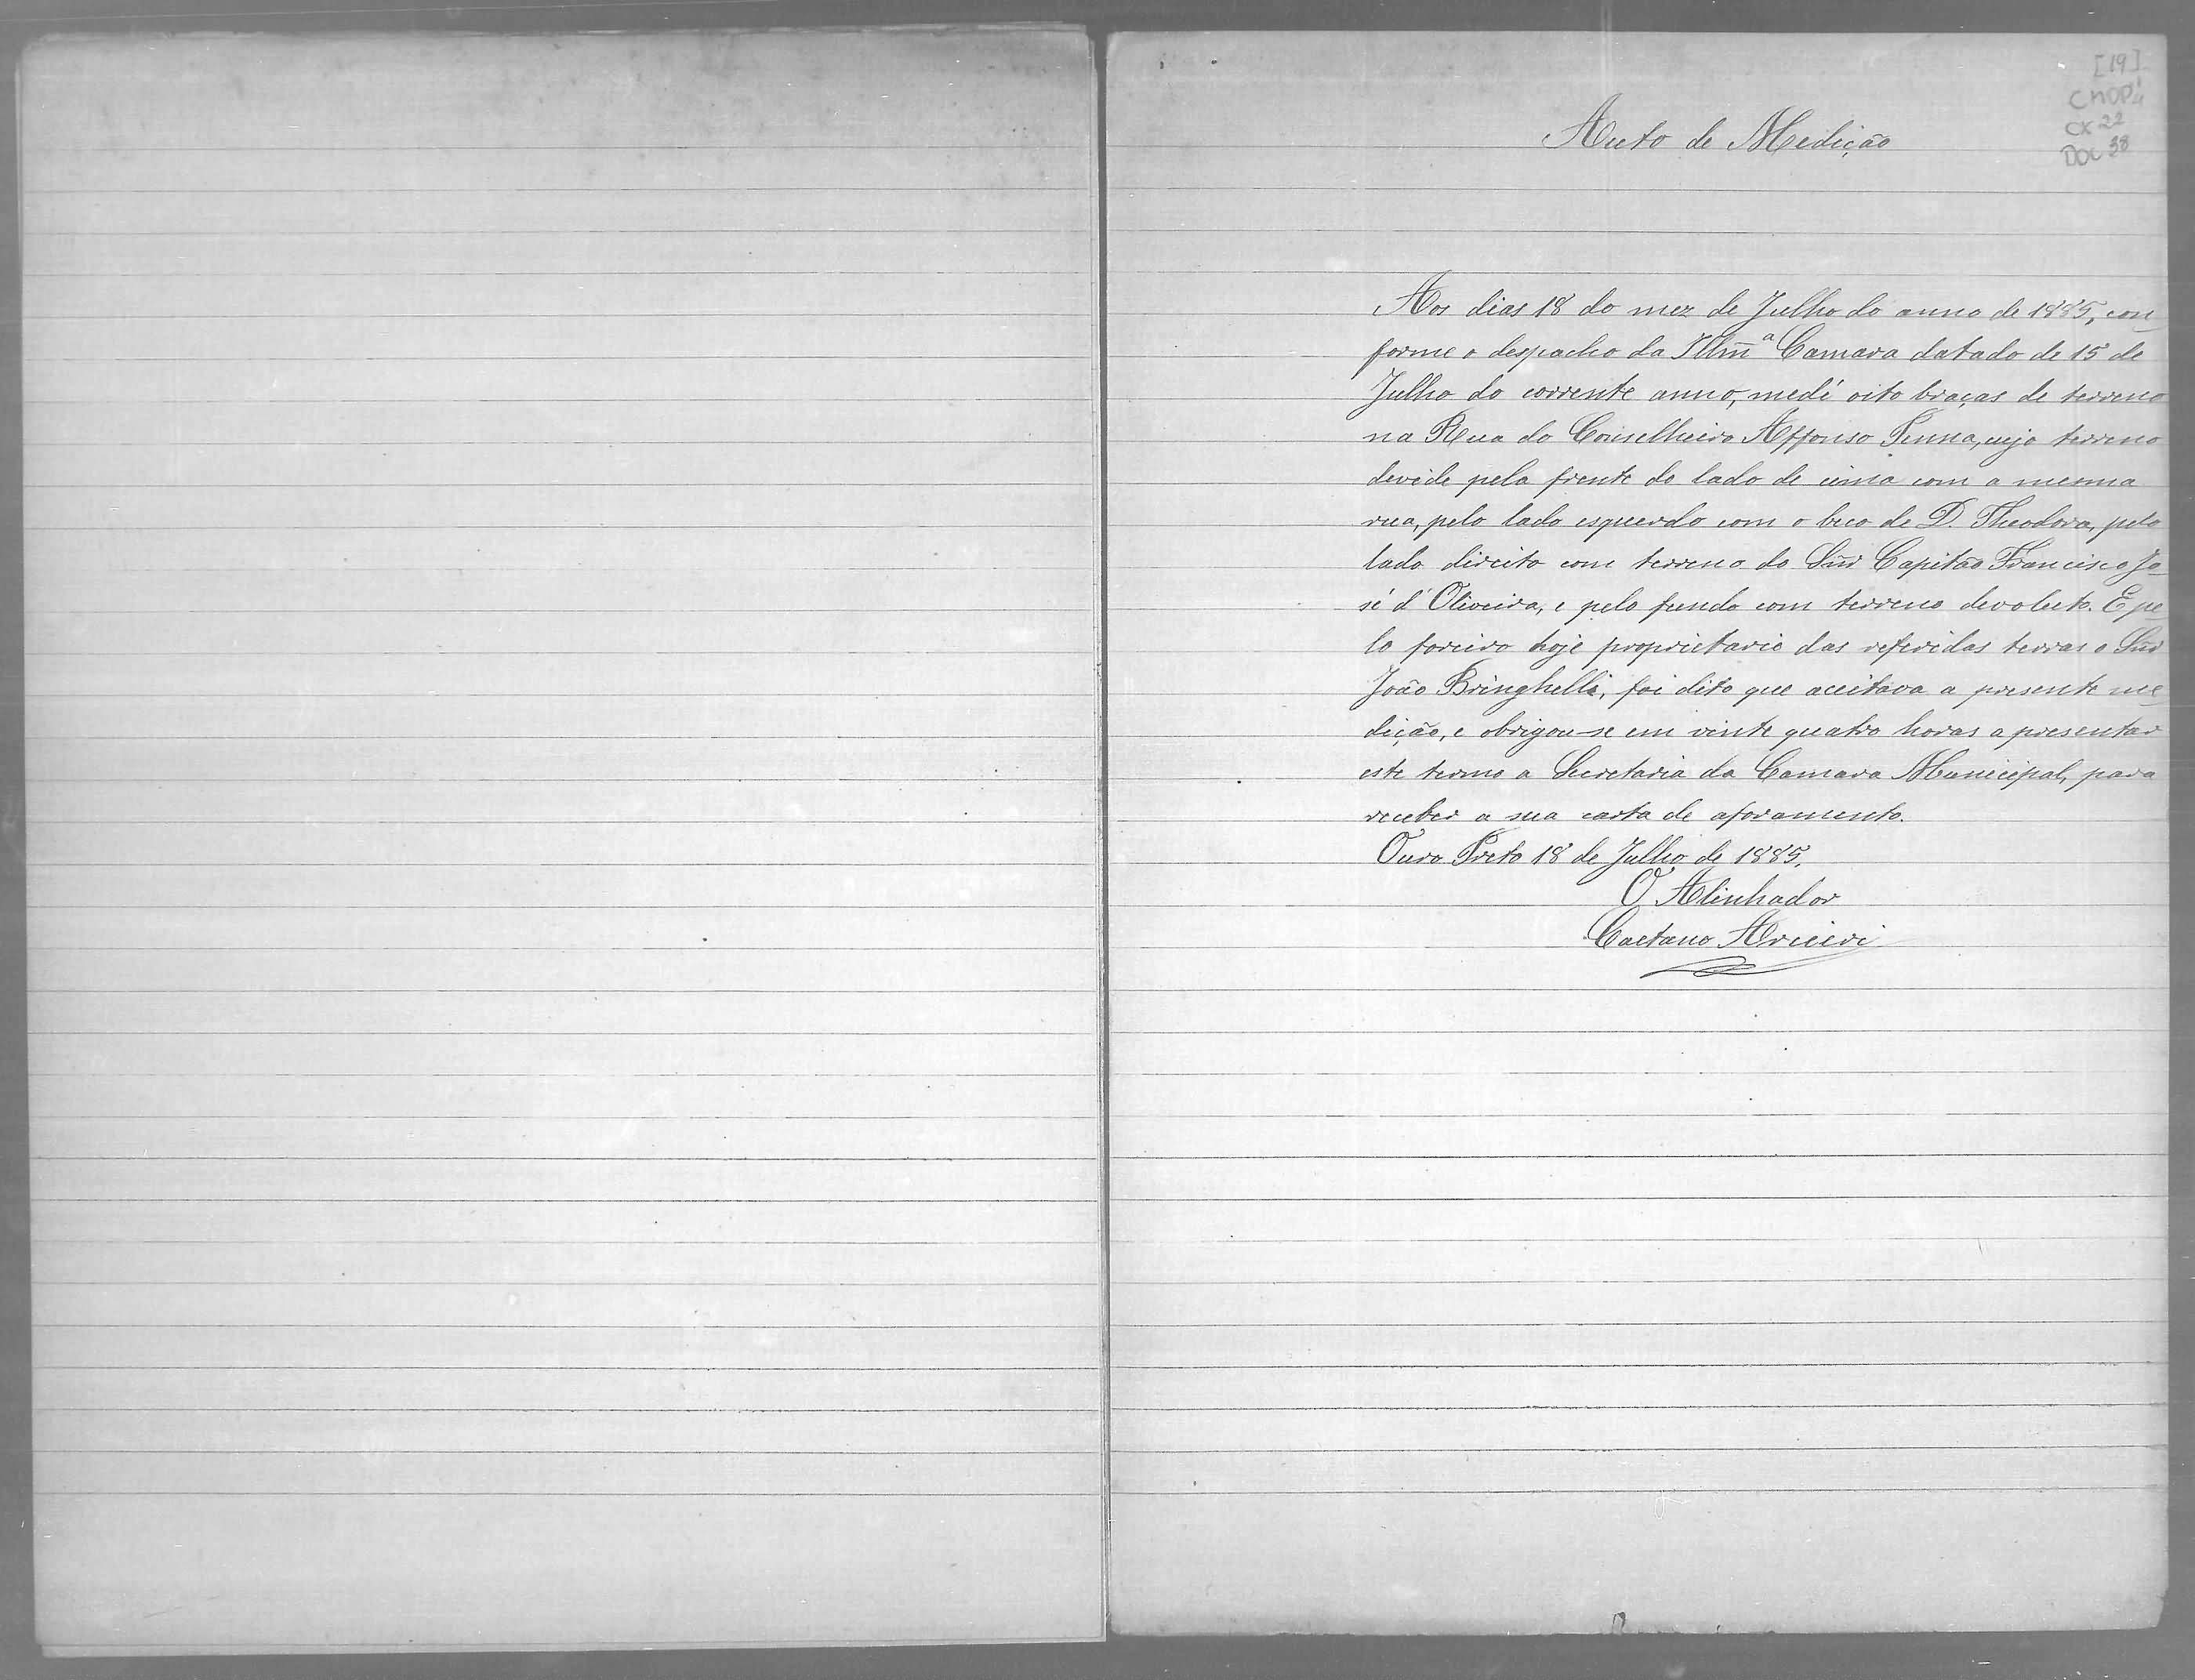 [19]
CMOP
CX 22
DOC 38
Auto de Medição
Aos dias 18 do mez de Julho do anno de 1885, con
forme o despacho da Illm̃ª Camara datado de 15 de
Julho do corrente anno, medí oito braças de terreno
na Rua do Conselheiro Affonso Penna, cujo terreno
devide pela frente do lado de cima com a mesma
rua, pelo lado esquerdo com o beco de D. Theodora, pelo
lado direito com terreno do Sñr Capitão Francisco Jo_
sé d'Oliveira, e pelo fundo com terreno devoluto. E pe_
lo foreiro hoje proprietario das referidas terras o Sñr
João Bringhelli, foi dito que aceitava a presente me_
dição, e obrigou-se em vinte quatro horas apresentar
este termo a Secretaria da Camara Municipal, para
receber a sua carta de aforamento.
Ouro Preto 18 de Julho de 1885.
O Alinhador
Caetano Arcieri